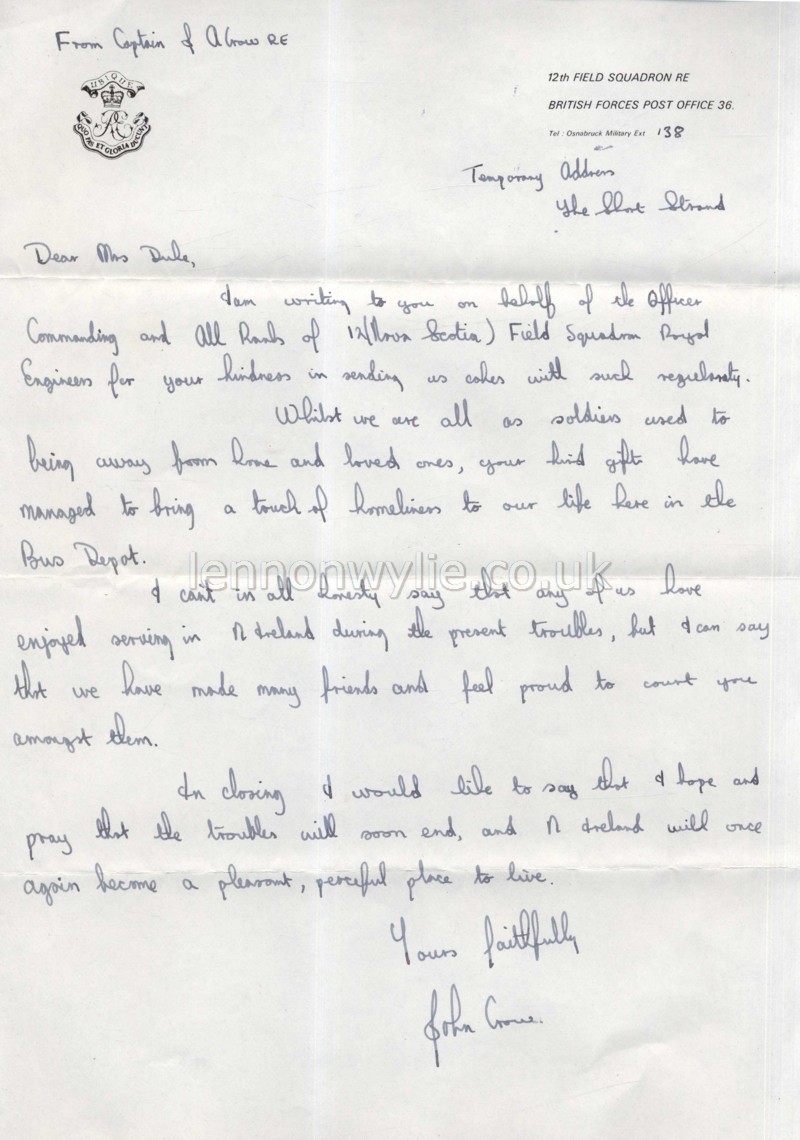 From Captain J A Crow RE
UBIQUE
QUO FAS ET GLORIA DUCUNT
12th FIELD SQUADRON RE
BRITISH FORCES POST OFFICE 36.
Tel : Osnabruck Military Ext 138
Temporary Address
The Short Strand
Dear Mrs Duke,
I am writing to you on behalf of the Officer
Commanding and All Ranks of 12 (Nova Scotia) Field Squadron Royal
Engineers for your kindness in sending us cakes with such regularaty.
Whilst we are all as soldiers used to
being away from home and loved ones, your kind gifts have
managed to bring a touch of homeliness to our life here in the
Bus Depot.
lennonwylie.co.uk
I can't in all honesty say that any of us have
enjoyed serving in N Ireland during the present troubles, but I can say
that we have made many friends and feel proud to count you
amongst them.
In closing I would like to say that I hope and
pray that the troubles will soon end, and N Ireland will once
again become a pleasant, peaceful place to live.
Yours faithfully
John Crow.